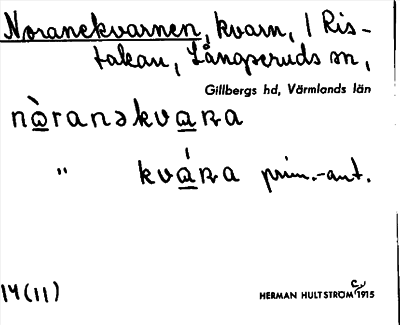 Noranekvarnen, kvarn, i Ris-
takan, Långseruds sn,
Gillbergs hd, Värmlands län
nɷ̀ranəkvaʀa
" kváʀa prim.-aut.
14(11)
HERMAN HULTSTRÖM 1915